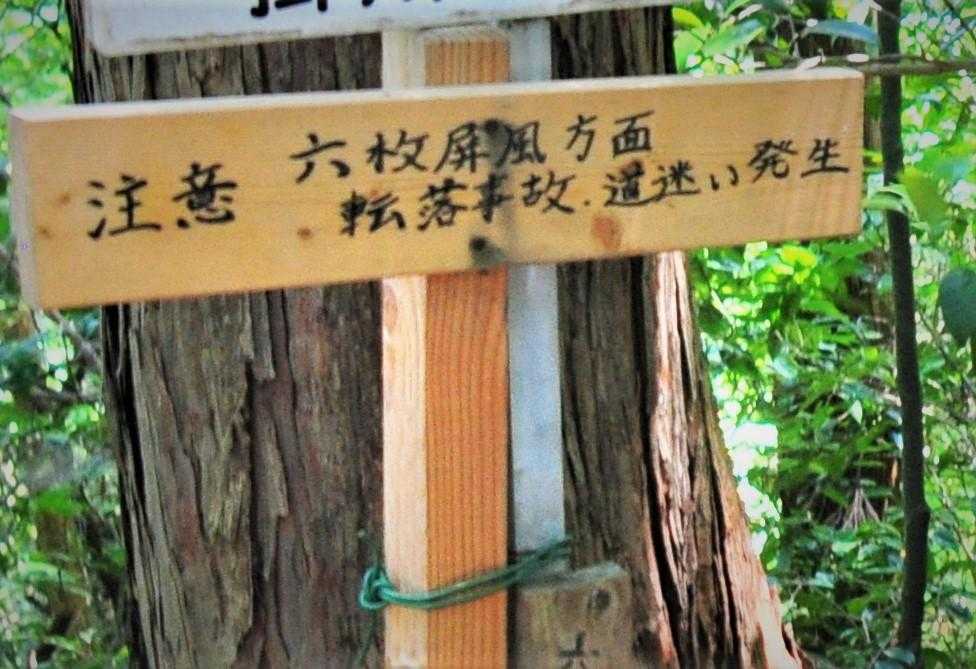 注意
六枚屏風方面
転落事故.道迷い発生
六